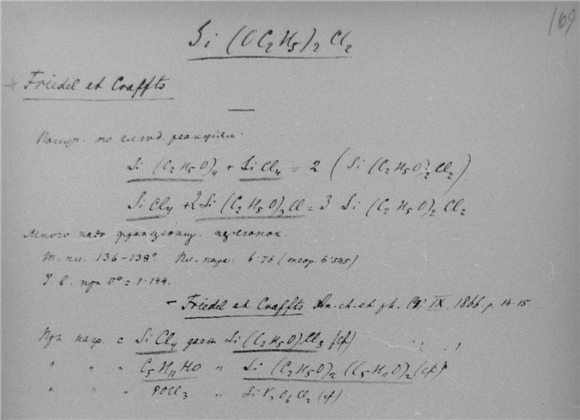 169
Si (OC2H5)2 Cl2
+ Friedel et Craffts
Получ. по след. реакциям:
Si (C2H5O)4 + SiCl4 = 2 (Si (C2H5O)2 Cl2)
SiCl4 + 2 Si (C2H5O)3 Cl = 3 Si (C2H5O)2 Cl2
Много надо фракциони. перегонок.
Т. кип. 136-138°. Пл. пара: 6.76 (теор. 6.545)
У. в. при 0° = 1.144.
- Friedel et Craffts An. ch. et ph. (4) IX. 1866 p. 14-15
При нагр. с SiCl4 дает Si(C2H5O)Cl3 (cf)
" " " C5H11HO " Si (C2H5O)2 (C5H11O)2 (cf)
" " " POCl3 "